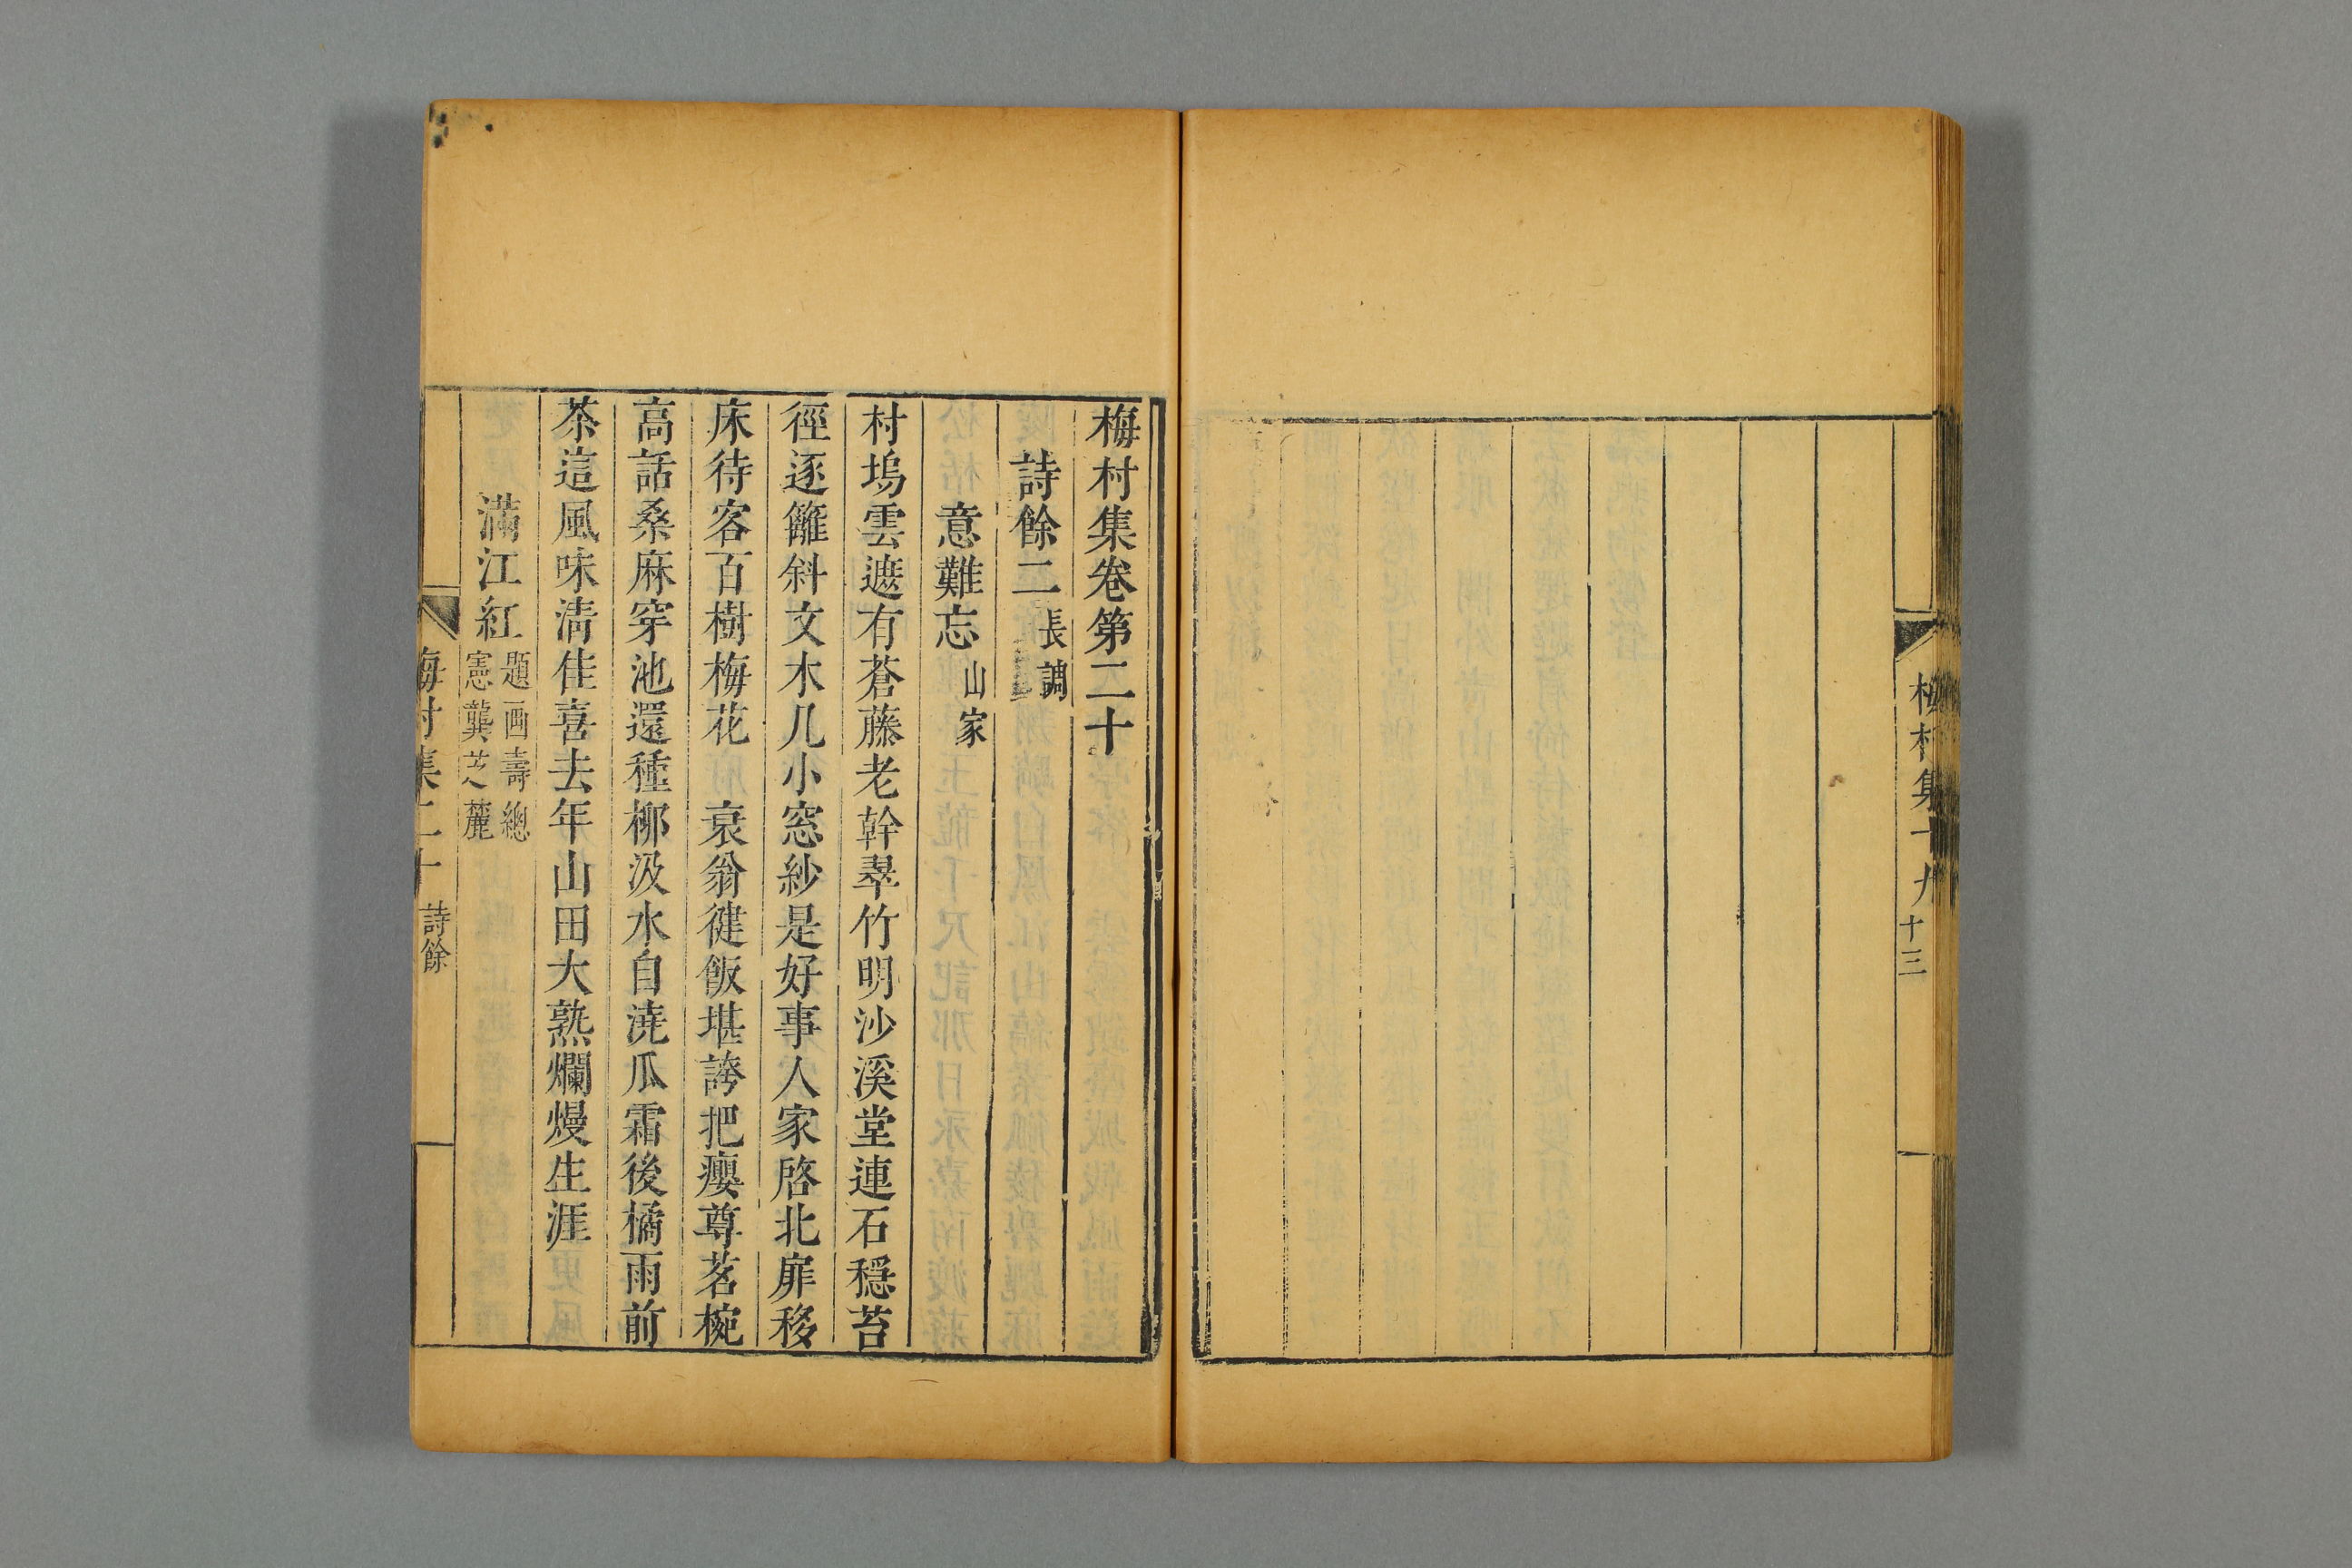 梅村集十九
十三
梅村集卷第二十
詩餘二 長調
意難忘 山家
村塢雲遮有蒼藤老幹翠竹明沙溪堂連石穩苔
徑逐籬斜文木几小窓紗是好事人家啓北扉移
床待客百樹梅花 衰翁健飯堪誇把癭尊茗椀
高話桑麻穿池還種柳汲水自澆瓜霜後橘雨前
茶這風味清佳喜去年山田大熟爛熳生涯
滿江紅 題画壽總
憲龔芝麓
梅村集二十
詩餘